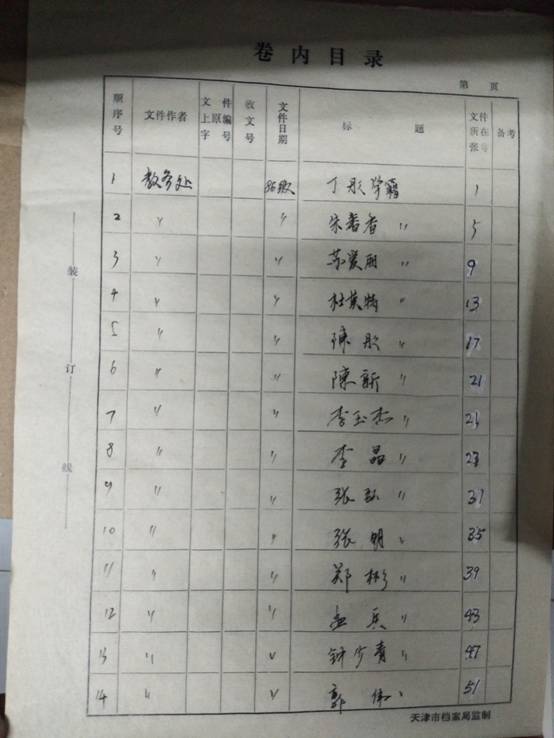 卷内目录
第 页
顺序号 文件作者 文件上原编字号 收文号 文件日期 标题 文件所在张号 备考
1 教务处 86级 丁彤学籍 1
2 〃 〃 朱 香 〃 5
3 〃 〃 苏爱丽 〃 9
4 〃 〃 杜英 〃 13
5 〃 〃 陈彤 〃 17
6 〃 〃 陈新 〃 21
7 〃 〃 李玉杰 〃
8 〃 〃 李晶 〃
9 〃 〃 张 〃 31
10 〃 〃 张明 〃 35
11 〃 〃 郑彬 〃 39
12 〃 〃 孟兵 〃 43
13 〃 〃 钟少青 〃 47
14 〃 〃 郭伟 〃 51
装
订
线
天津市档案局监制